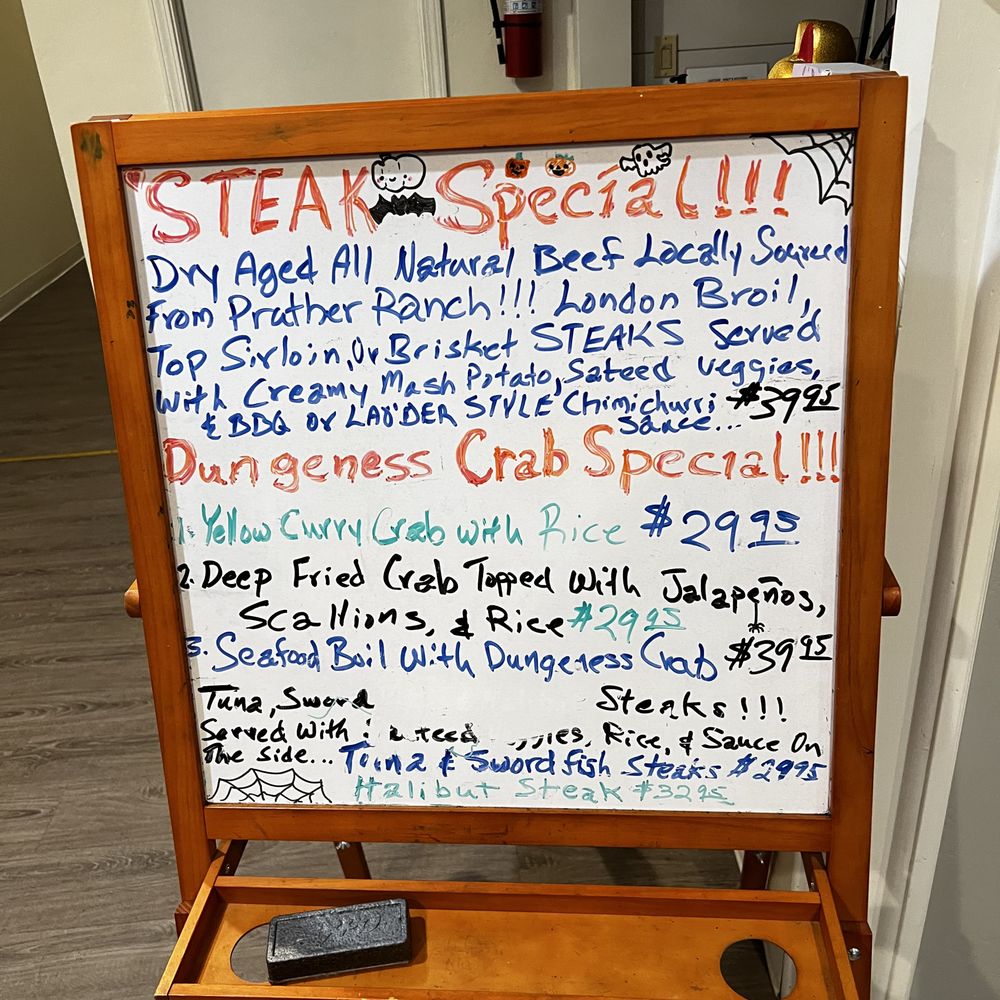 STEAK Special!!!
Dry Aged All Natural Beef Locally Sourced
From Prather Ranch!!! London Broil,
Top Sirloin, Or Brisket STEAKS Served
With Creamy Mash Potato, Sateed Veggies,
& BBQ Or LAODER STYLE Chimichurri $39.95
Sauce...
Dungeness Crab Special!!!
1. Yellow Curry Crab with Rice $29.95
2. Deep Fried Crab Topped With Jalapeños,
Scallions, & Rice $29.95
3. Seafood Boil With Dungeness Crab $39.95
Tuna, Sword Steaks!!!
Served With Rice, & Sauce On
The Side... Tuna & Swordfish Steaks $29.95
Halibut Steak $32.95